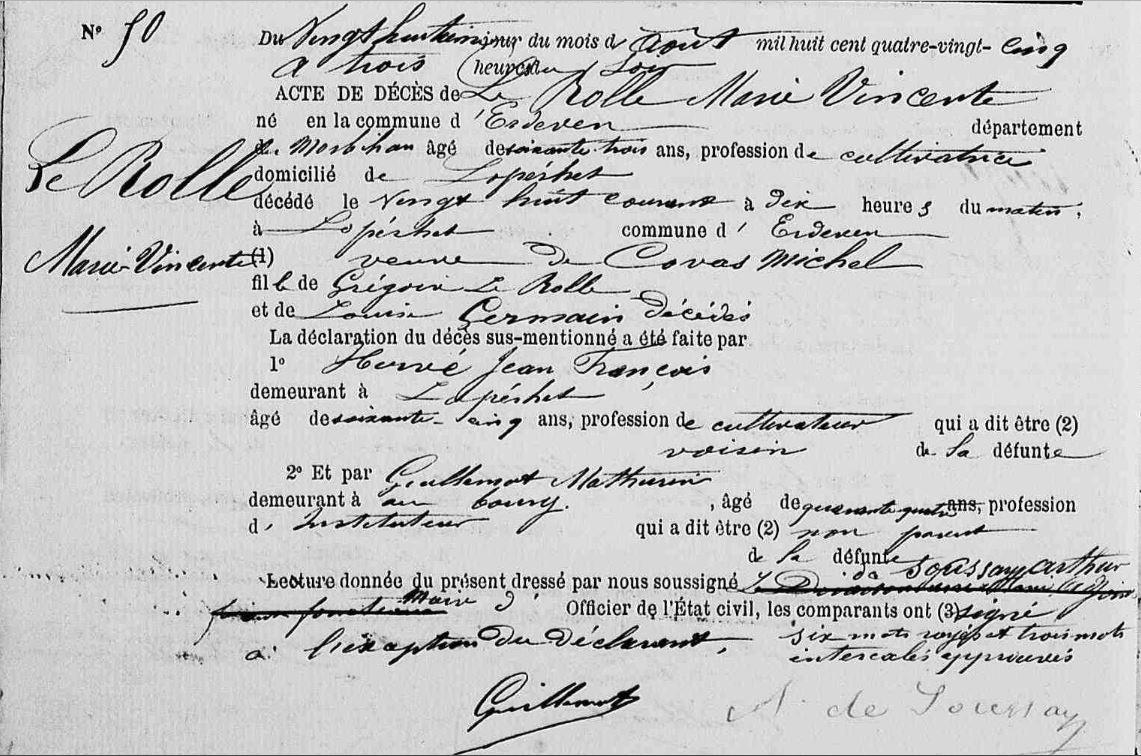 N° 50
Du Vingt huitième jour du mois d'Août mil huit cent quatre-vingt-cinq
à trois heures du Soir
ACTE DE DÉCÈS de Le Rolle Marie Vincente
né en la commune d'Erdeven département
du Morbihan âgé de soixante-trois ans, profession de cultivatrice
Le Rolle
domicilié de Lopérhet
décédé le Vingt huit courant à Dix heures du matin,
à Lopérhet commune d'Erdeven
Marie-Vincente
(1) veuve de Covas Michel
fille de Grégoire Le Rolle
et de Louise Germain Décédés
La déclaration du décès sus-mentionné a été faite par
1° Hervé Jean François
demeurant à Lopérhet
âgé de soixante-cinq ans, profession de cultivateur qui a dit être (2)
voisin de la défunte
2° Et par Guillemot Mathurin
demeurant à au bourg. , âgé de quarante quatre ans, profession
d'Instituteur qui a dit être (2) non parent
de la défunte
Lecture donnée du présent dressé par nous soussigné de Soussay Arthur
Maire d' Officier de l'État civil, les comparants ont (3) signé
à l'exception du Déclarant, six mots rayés et trois mots
intercalés approuvés
Guillemot A. de Soussay